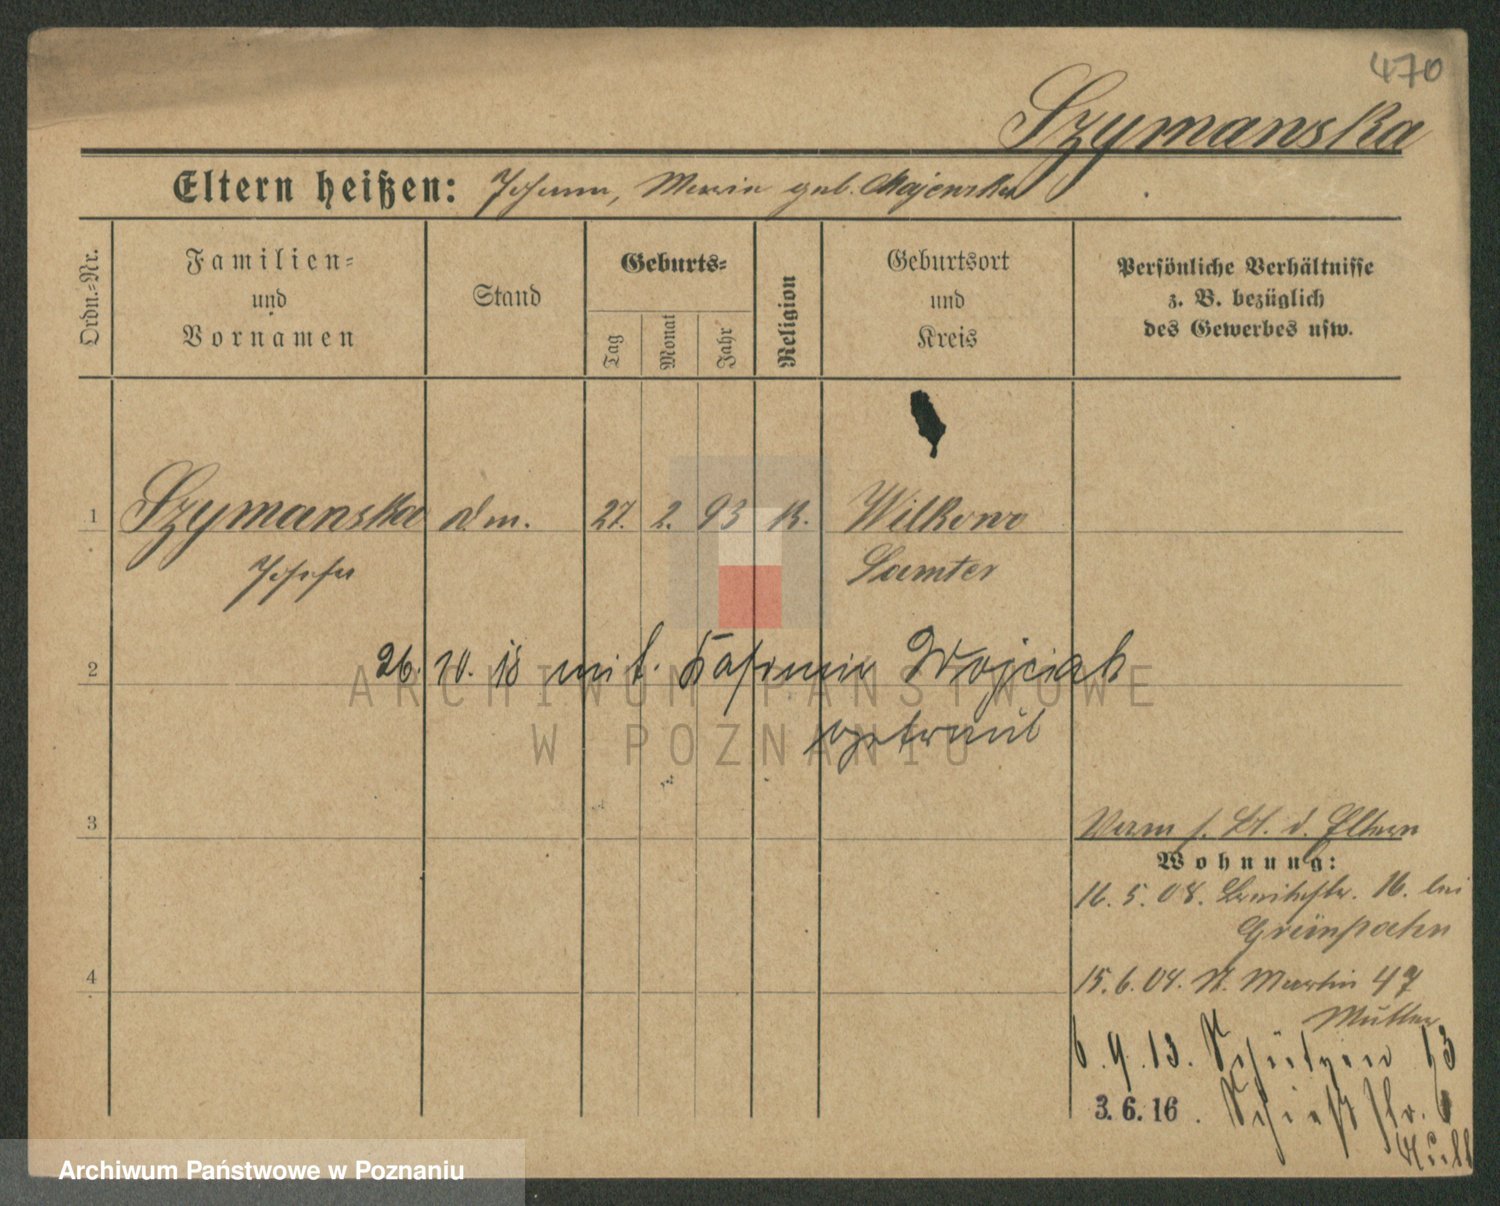 470
Szymanska
Eltern heißen: Johann, Maria geb. Majewska
Ordn.-Nr.
Familien-
und
Vornamen
Stand
Geburts-
Tag
Monat
Jahr
Religion
Geburtsort
und
Kreis
Persönliche Verhältnisse
z. B. bezüglich
des Gewerbes usw.
1 Szymanska d.m. 27. 2. 93 K. Wilkowo
Josefa Samter
2 26. 10. 18 mit Kasimir Wojciak
getraut
3
s. Bl. d. Eltern
Wohnung:
16. 5. 08. 16. bei
Grünspahn
4
15. 6. 08. St. Martin 47
Mutter
6. 9. 13. Schützen 13
3.6.16. Schießstr. 6
ARCHIWUM PAŃSTWOWE
W POZNANIU
Archiwum Państwowe w Poznaniu